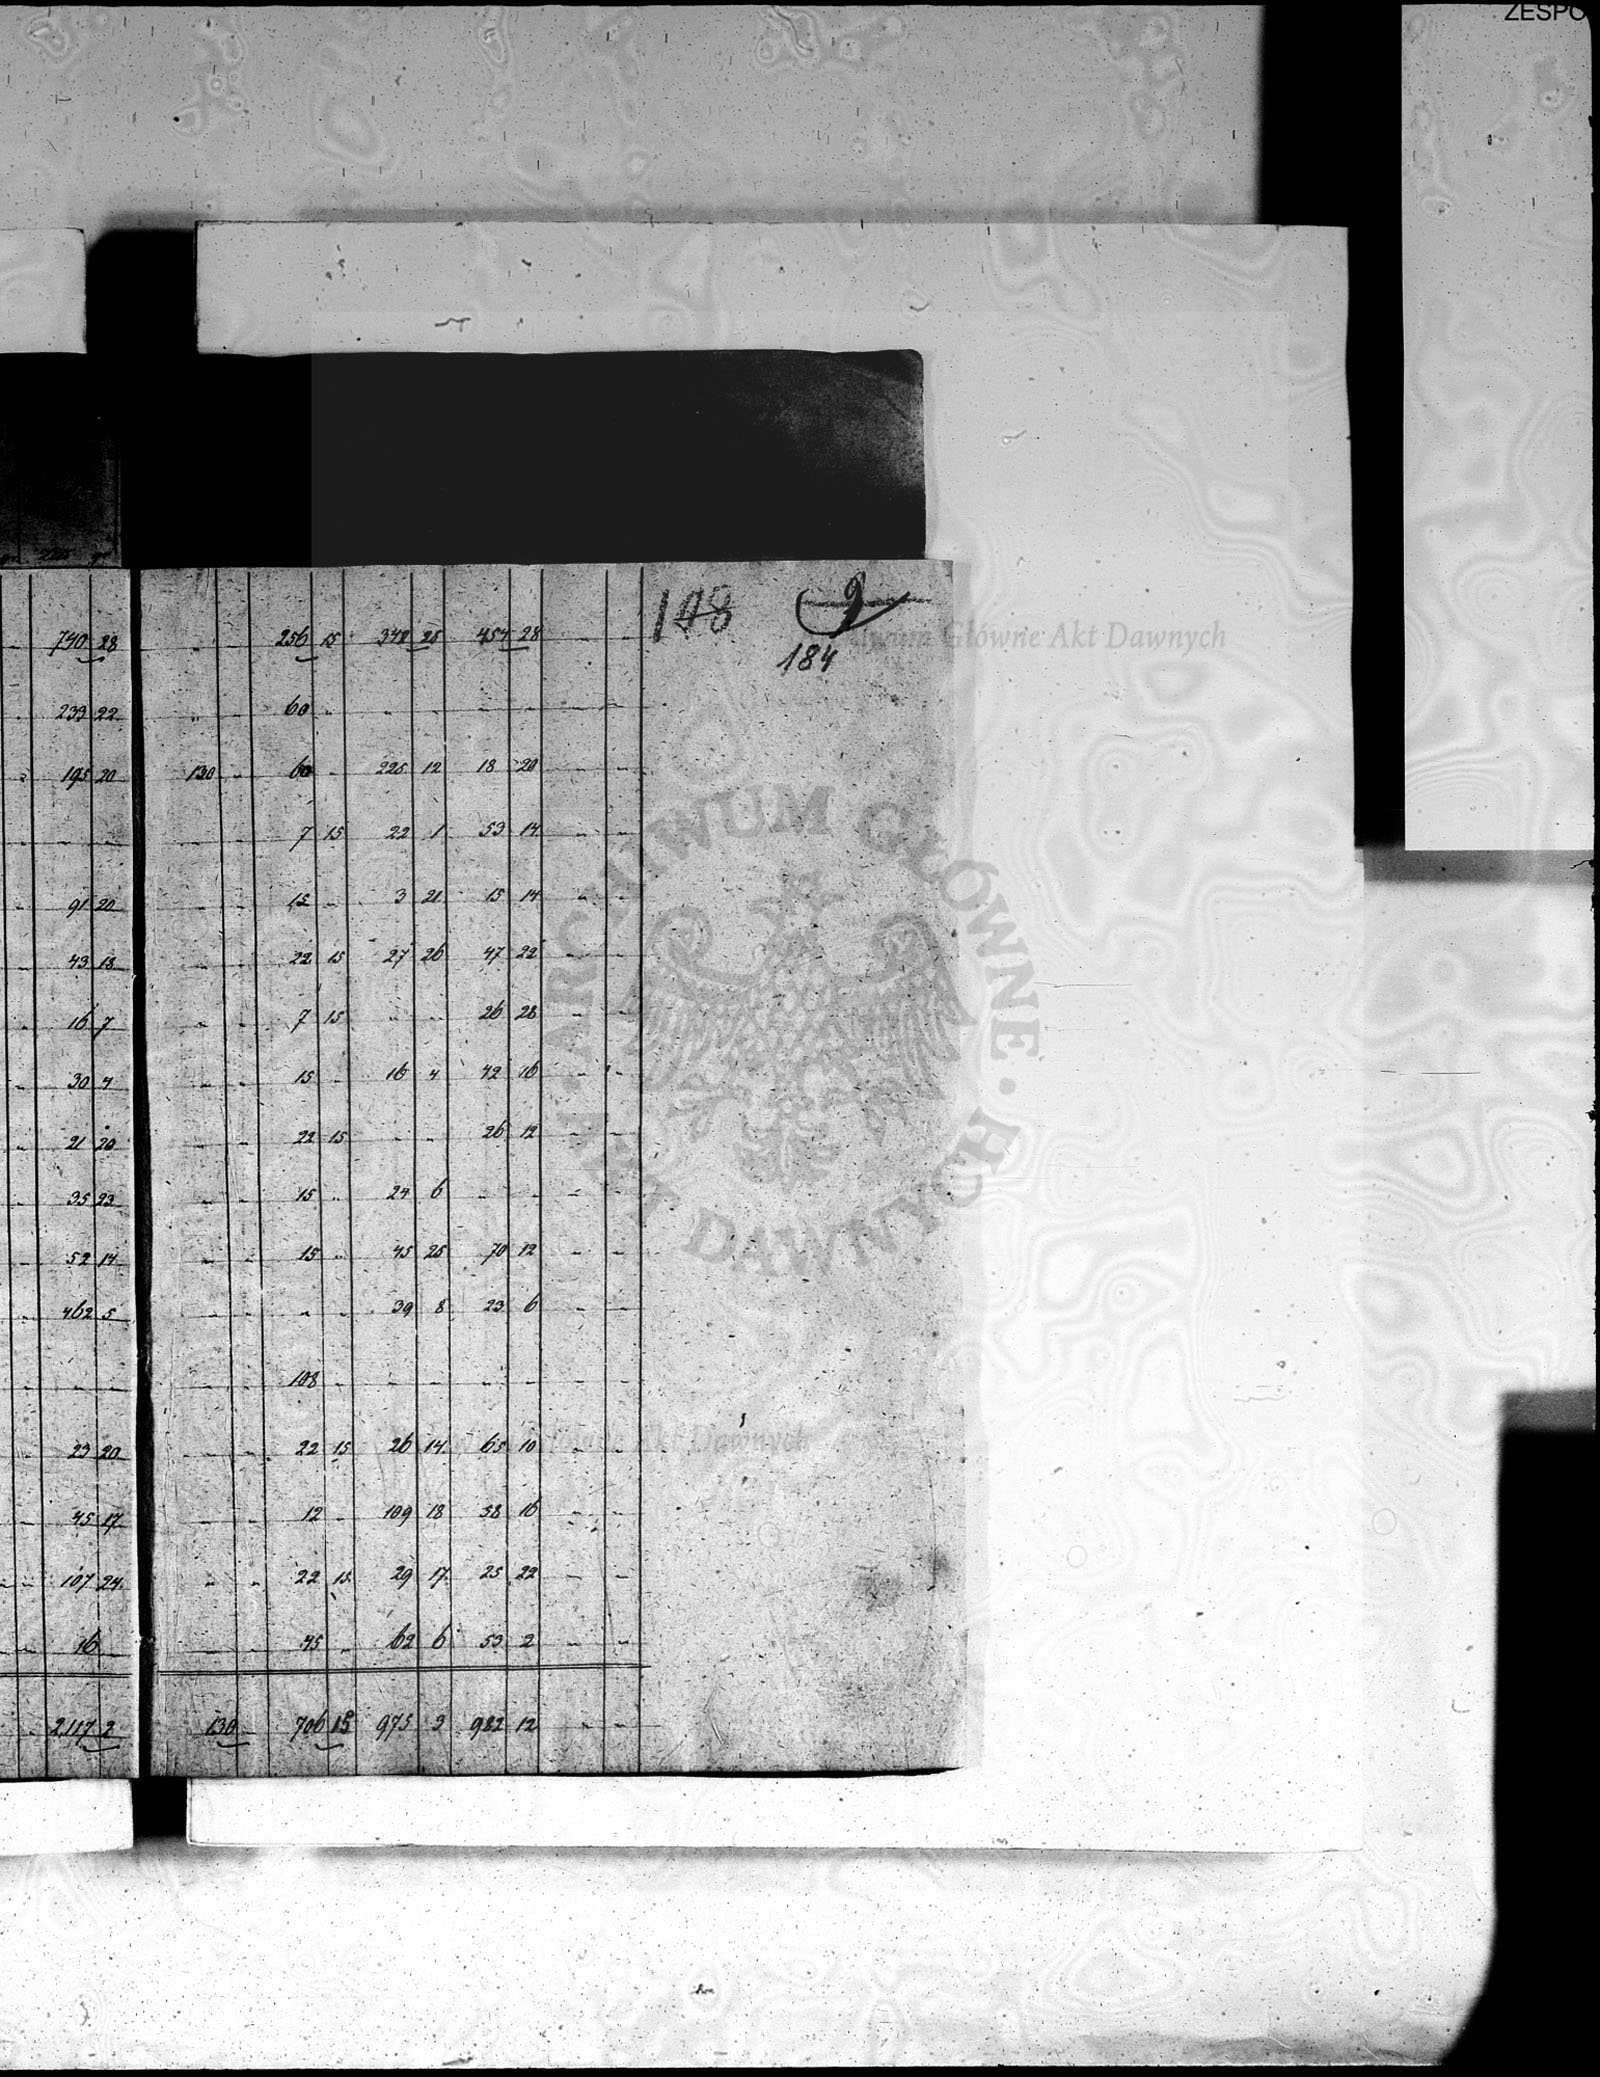 ZESPO
148 9
184
740 28 " " 256 15 342 25 454 28 " "
239 22 " " 60 " " " " " " "
195 20 130 " 60 " 225 12 18 20 " "
" " " " 7 15 22 1 53 14 " "
91 20 " " 15 " 3 21 15 14 " "
43 18 " " 22 15 27 26 47 22 " "
16 7 " " 7 15 " " 26 28 " "
30 4 " " 15 " 16 4 42 16 " "
21 20 " " 22 15 " " 26 12 " "
35 23 " " 15 " 24 6 " " " "
52 14 " " 15 " 45 25 70 12 " "
462 5 " " " " 39 8 23 6 " "
" " " " 108 " " " " " " "
23 20 " " 22 15 26 14 65 10 " "
45 17 " " 12 " 109 18 38 16 " "
107 24 " " 22 15 29 17 25 22 " "
16 " " 45 " 62 6 53 2 " "
2,117 2 130 " 706 15 975 3 982 12 " "
Archiwum Główne Akt Dawnych
ARCHIWUM GŁÓWNE AKT DAWNYCH
Główne Akt Dawnych